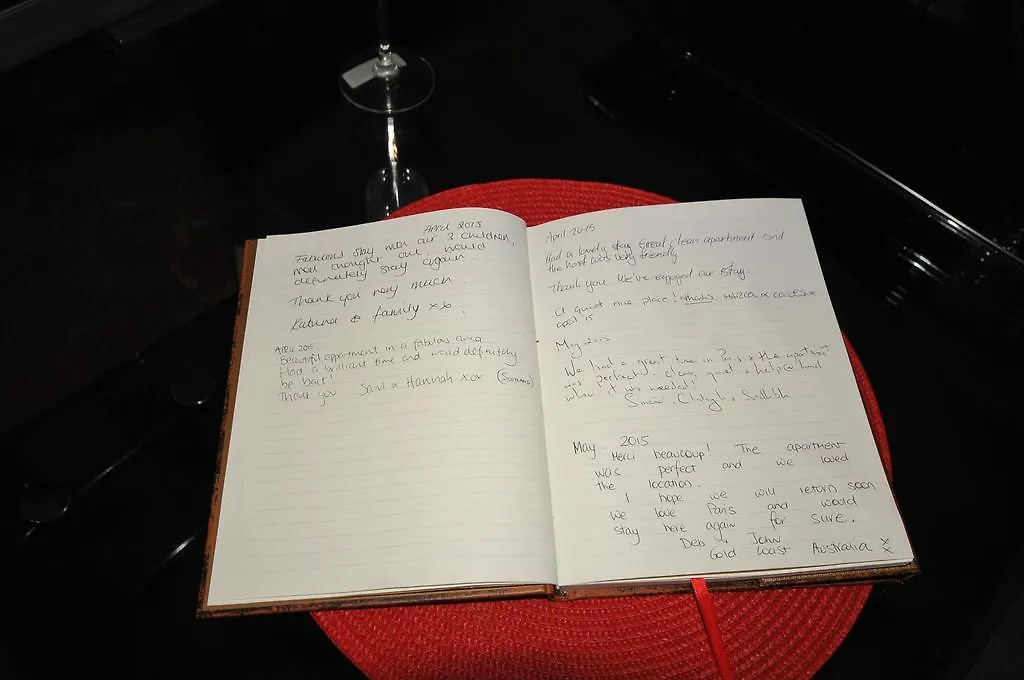 April 2015
Fabulous stay with our 3 children,
most thought out, would
definitely stay again.
Thank you very much.
Katrina & family xx.
April 2015
Beautiful appartment in a fabulous area
Had a brilliant time and would definitely
be back!
Thank you Sam & Hannah xox
April 2015
Had a lovely stay Great clean apartment and
the host was very friendly
Thank you. We've enjoyed our stay.
A quiet nice place! thanks.
april 15
May 2015
We had a great time in Paris & the apartment
was perfect - clean, quiet & help @ hand
when it was needed!
May 2015
Merci beaucoup! The apartment
was perfect and we loved
the location.
I hope we will return soon
we love Paris and would
stay here again for sure.
Deb & John
Gold Coast Australia